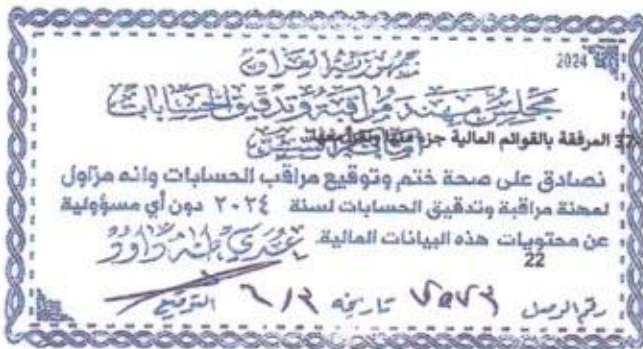 2024
جمهورية العراق
مجلس مهنة مراقبة وتدقيق الحسابات
37 المرفقة بالقوائم المالية جزء منها وتقرأ معها
نصادق على صحة ختم وتوقيع مراقب الحسابات وانه مزاول
لمهنة مراقبة وتدقيق الحسابات لسنة ٢٠٢٤ دون أي مسؤولية
عن محتويات هذه البيانات المالية.
22
رقم الوصل ٧٥٧٣ تاريخه ٦/٣ التوقيع